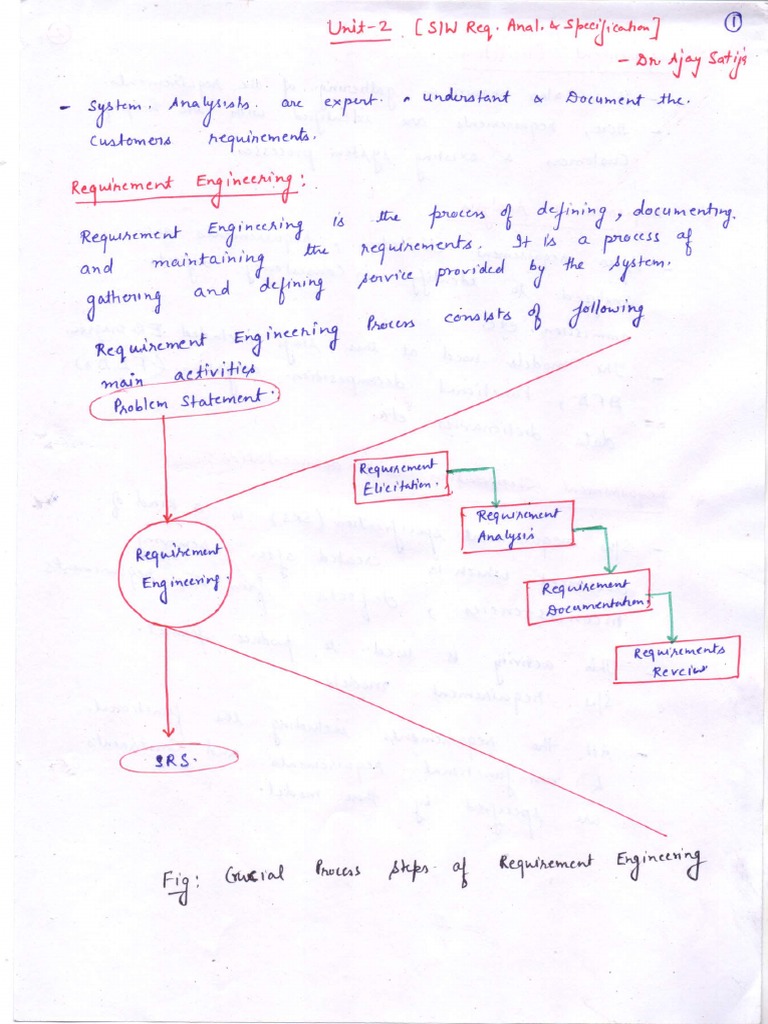 ①
Unit-2 [S/W Req. Anal. & Specification]
- Dr. Ajay Satija
- System. Analysists. are expert. understant & Document the.
customers requirements.
Requirement Engineering:
Requirement Engineering is the process of defining, documenting.
and maintaining the requirements. It is a process of
gathering and defining service provided by the system.
Requirement Engineering Process consists of following
main activities
Problem Statement.
Requirement
Elicitation.
Requirement
Analysis
Requirement
Engineering.
Requirement
Documentation,
Requirements
Review
SRS.
Fig: Crucial Process Steps of Requirement Engineering